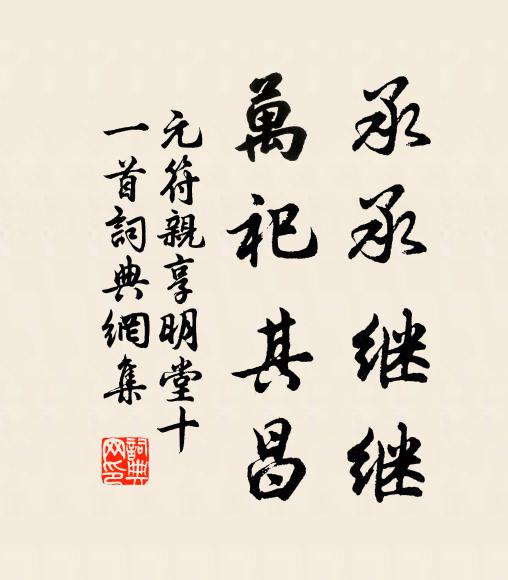 承承继继
萬祀其昌
元符親享明堂十
一首詞典網集
詞典网印